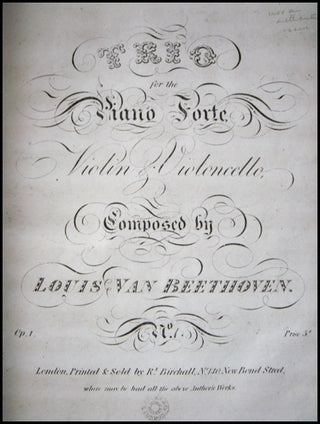 TRIO
for the
Piano Forte,
Violin & Violoncello,
Composed by
LOUIS VAN BEETHOVEN.
Op. 1. No. 1. Price 5s.
London, Printed & Sold by Rt. Birchall, No. 140, New Bond Street,
where may be had all the above Author's Works.